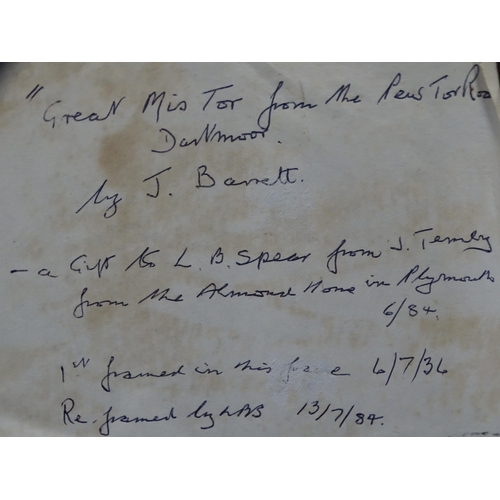 "Great Mis Tor from the Pew Tor Roa
Dartmoor.
by J. Barrett.
- a Gift to L.B. Spear from J.
from the Almond Home in Plymouth
6/84.
1st framed in this frame 6/7/36
Re.framed by LBS 13/7/84.